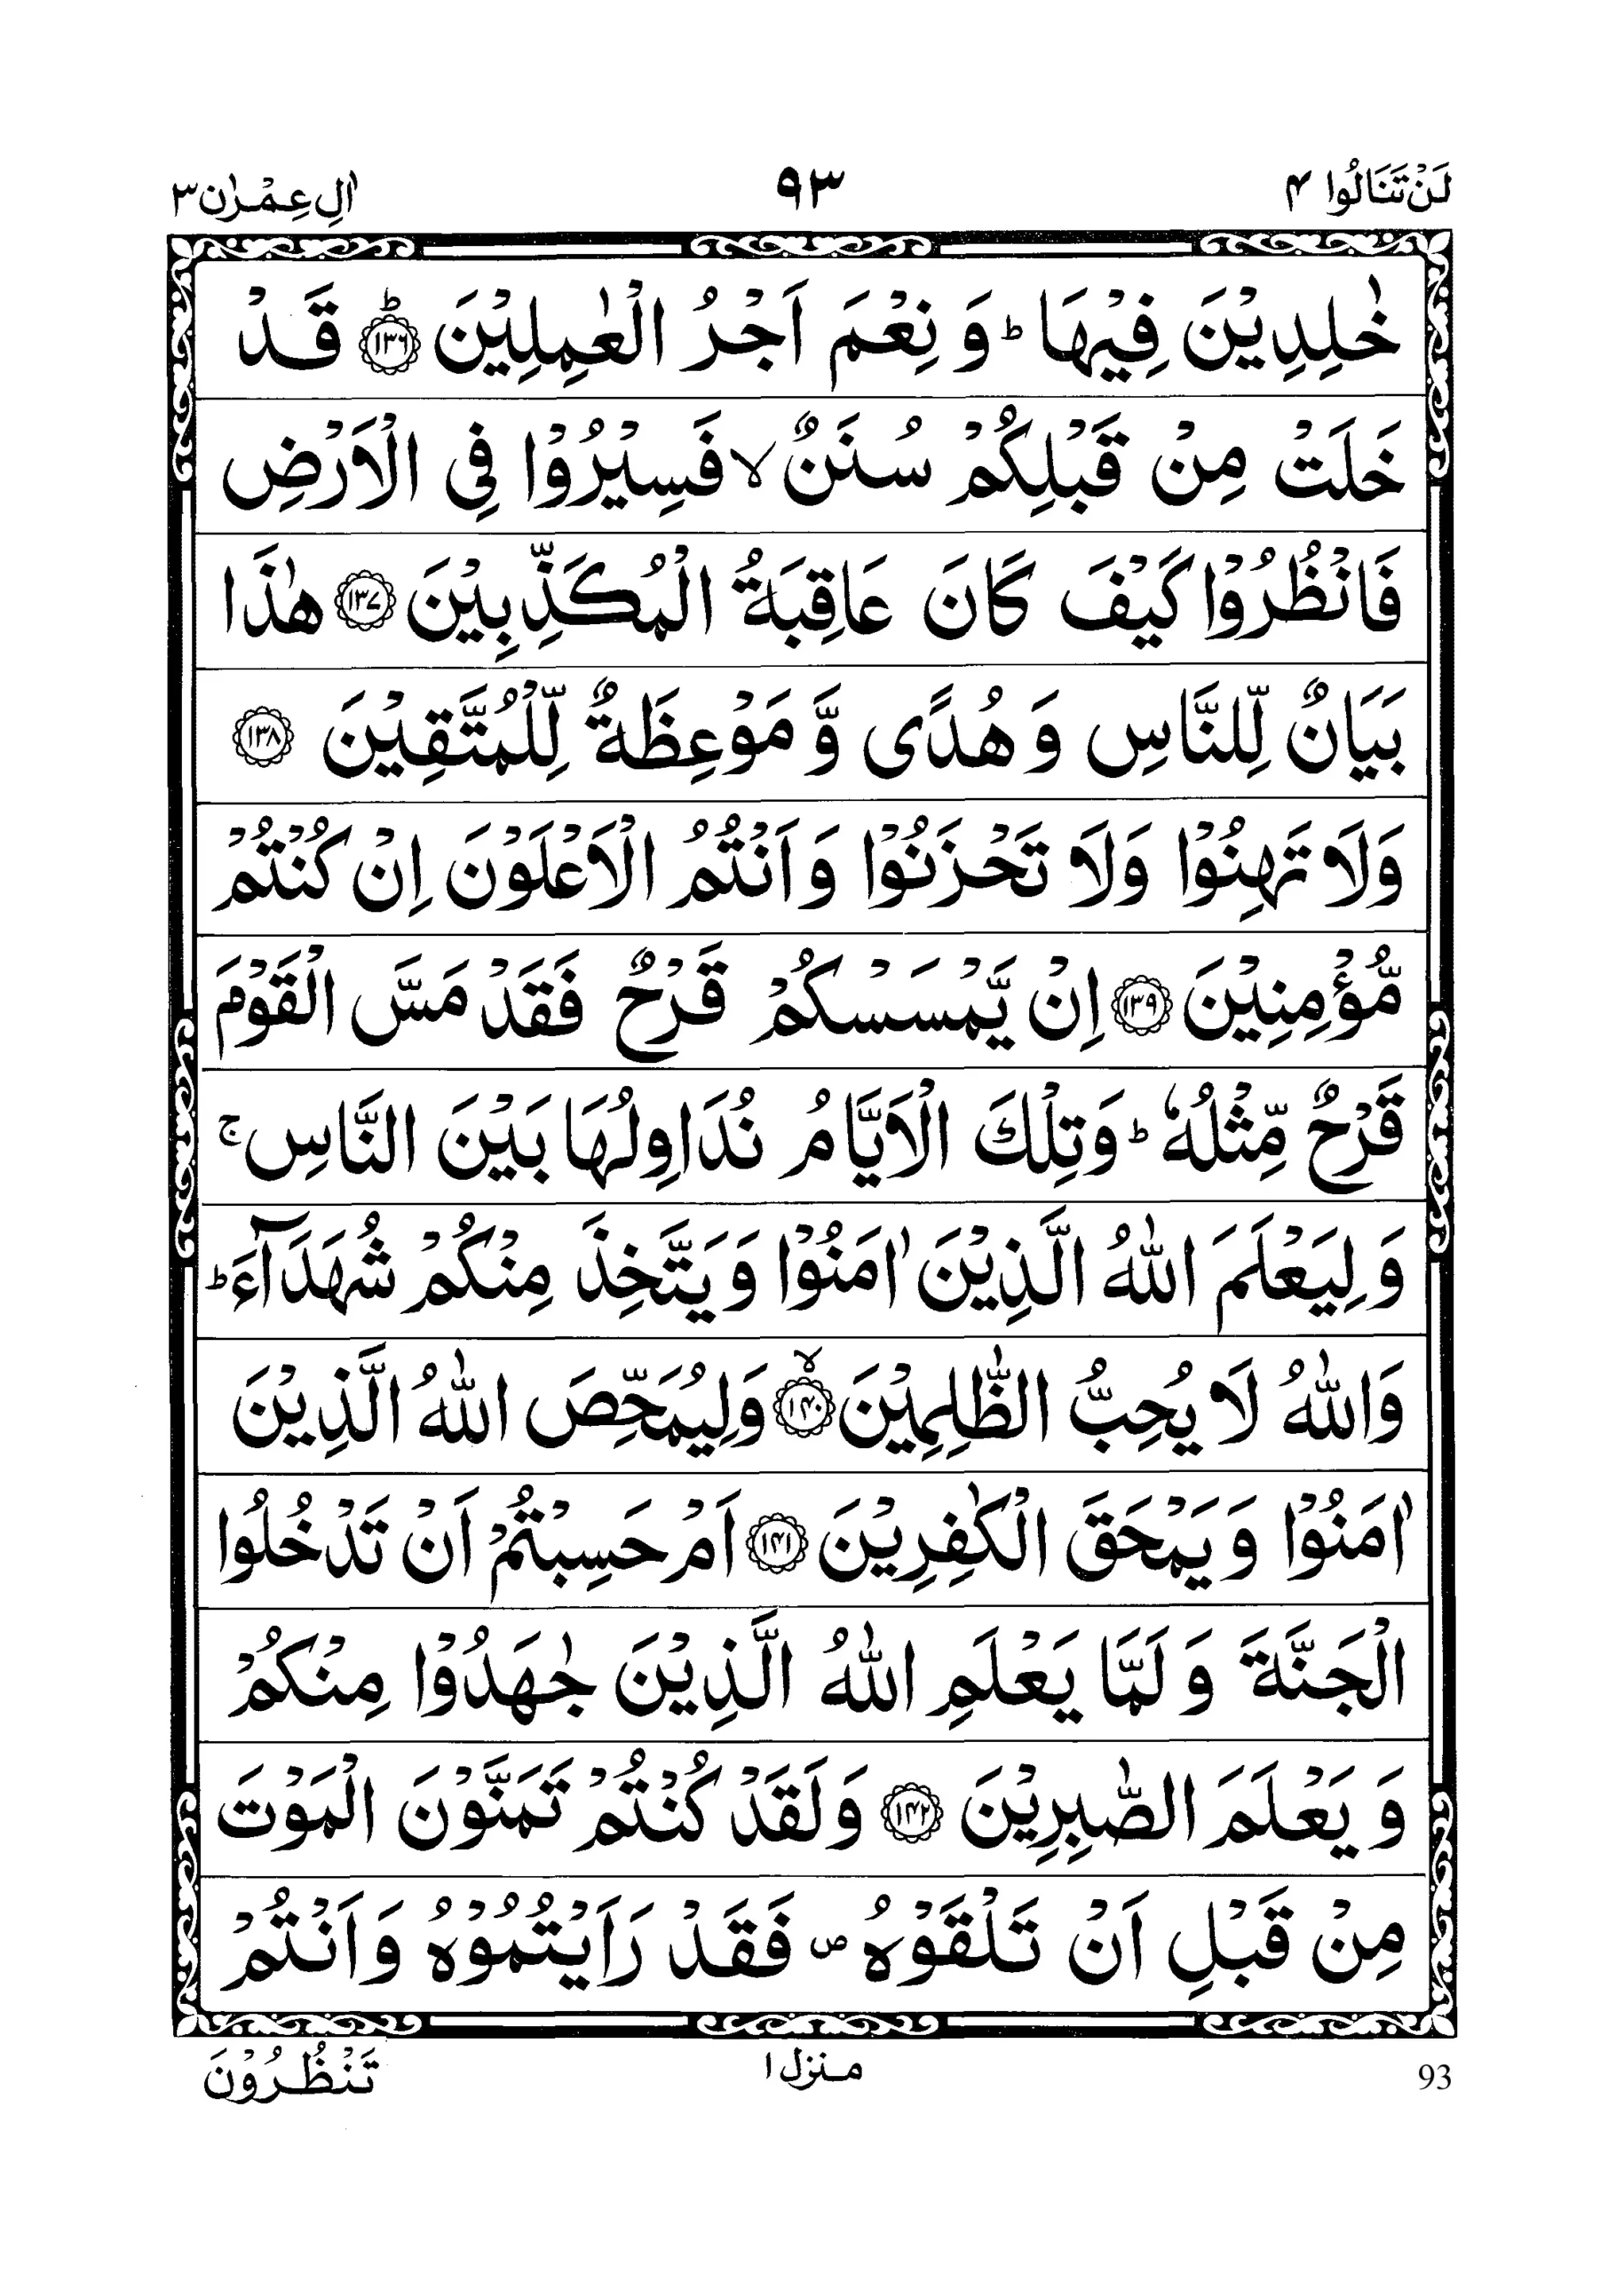 لَنْ تَنَالُوا ۴
۹۳
اٰلِ عِمْرٰن ۳
خٰلِدِيْنَ فِيْهَا ؕ وَ نِعْمَ اَجْرُ الْعٰمِلِيْنَ ؕ ﴿۱۳۶﴾ قَدْ
خَلَتْ مِنْ قَبْلِكُمْ سُنَنٌ ۙ فَسِيْرُوْا فِي الْاَرْضِ
فَانْظُرُوْا كَيْفَ كَانَ عَاقِبَةُ الْمُكَذِّبِيْنَ ﴿۱۳۷﴾ هٰذَا
بَيَانٌ لِّلنَّاسِ وَ هُدًى وَّ مَوْعِظَةٌ لِّلْمُتَّقِيْنَ ﴿۱۳۸﴾
وَلَا تَهِنُوْا وَلَا تَحْزَنُوْا وَاَنْتُمُ الْاَعْلَوْنَ اِنْ كُنْتُمْ
مُّؤْمِنِيْنَ ﴿۱۳۹﴾ اِنْ يَّمْسَسْكُمْ قَرْحٌ فَقَدْ مَسَّ الْقَوْمَ
قَرْحٌ مِّثْلُهٗ ؕ وَتِلْكَ الْاَيَّامُ نُدَاوِلُهَا بَيْنَ النَّاسِ ۚ
وَ لِيَعْلَمَ اللّٰهُ الَّذِيْنَ اٰمَنُوْا وَ يَتَّخِذَ مِنْكُمْ شُهَدَآءَ ؕ
وَاللّٰهُ لَا يُحِبُّ الظّٰلِمِيْنَ ۙ ﴿۱۴۰﴾ وَلِيُمَحِّصَ اللّٰهُ الَّذِيْنَ
اٰمَنُوْا وَ يَمْحَقَ الْكٰفِرِيْنَ ﴿۱۴۱﴾ اَمْ حَسِبْتُمْ اَنْ تَدْخُلُوا
الْجَنَّةَ وَ لَمَّا يَعْلَمِ اللّٰهُ الَّذِيْنَ جٰهَدُوْا مِنْكُمْ
وَ يَعْلَمَ الصّٰبِرِيْنَ ﴿۱۴۲﴾ وَلَقَدْ كُنْتُمْ تَمَنَّوْنَ الْمَوْتَ
مِنْ قَبْلِ اَنْ تَلْقَوْهُ ۪ فَقَدْ رَاَيْتُمُوْهُ وَاَنْتُمْ
93
منزل ۱
تَنْظُرُوْنَ